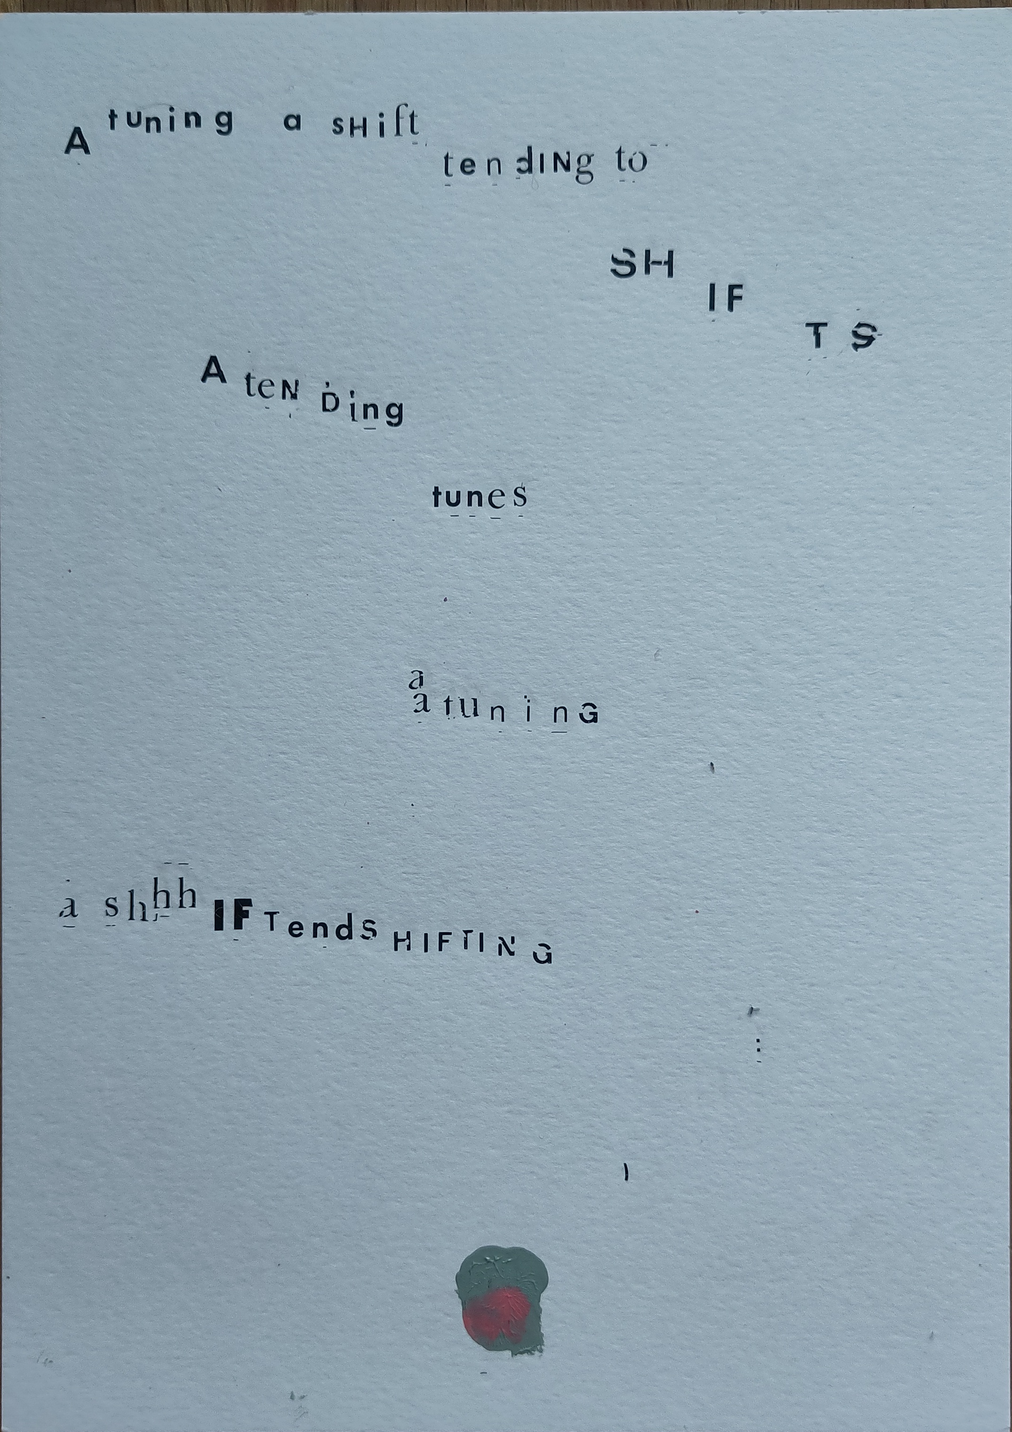 A tuning a sHift
tendINg to
SH
IF
T S
A teN Ding
tunes
a
a tuninG
a shhh IFTendS HIFTING